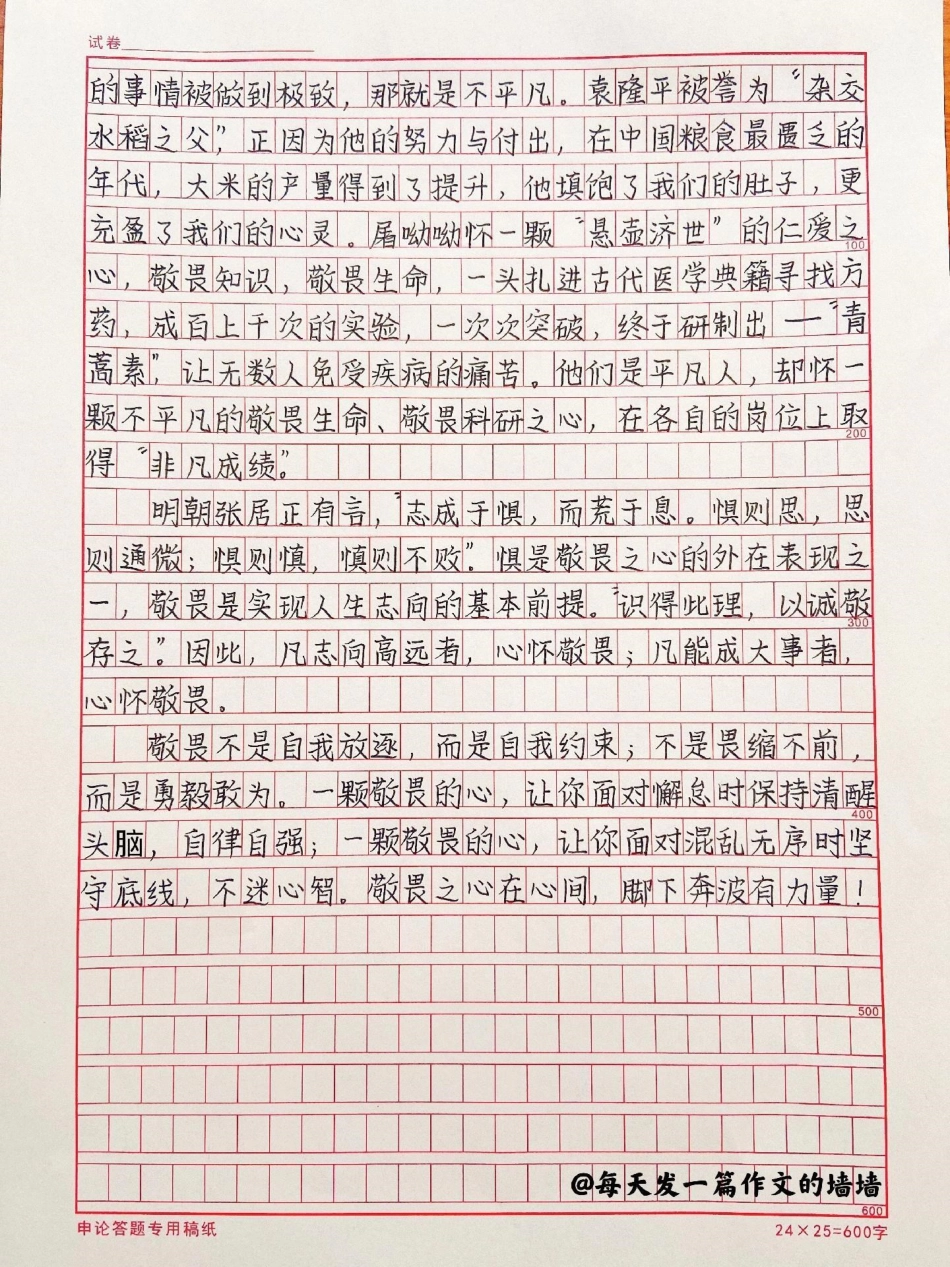 试卷
的事情被做到极致，那就是不平凡。袁隆平被誉为“杂交
水稻之父”，正因为他的努力与付出，在中国粮食最匮乏的
年代，大米的产量得到了提升，他填饱了我们的肚子，更
充盈了我们的心灵。屠呦呦怀一颗“悬壶济世”的仁爱之
100
心，敬畏知识，敬畏生命，一头扎进古代医学典籍寻找方
药，成百上千次的实验，一次次突破，终于研制出——“青
蒿素”，让无数人免受疾病的痛苦。他们是平凡人，却怀一
颗不平凡的敬畏生命、敬畏科研之心，在各自的岗位上取
200
得“非凡成绩”。
明朝张居正有言，“志成于惧，而荒于息。惧则思，思
则通微；惧则慎，慎则不败”。惧是敬畏之心的外在表现之
一，敬畏是实现人生志向的基本前提。“识得此理，以诚敬
300
存之”。因此，凡志向高远者，心怀敬畏；凡能成大事者，
心怀敬畏。
敬畏不是自我放逐，而是自我约束；不是畏缩不前，
而是勇毅敢为。一颗敬畏的心，让你面对懈怠时保持清醒
400
头脑，自律自强；一颗敬畏的心，让你面对混乱无序时坚
守底线，不迷心智。敬畏之心在心间，脚下奔波有力量！
500
@每天发一篇作文的墙墙
600
申论答题专用稿纸
24×25=600字